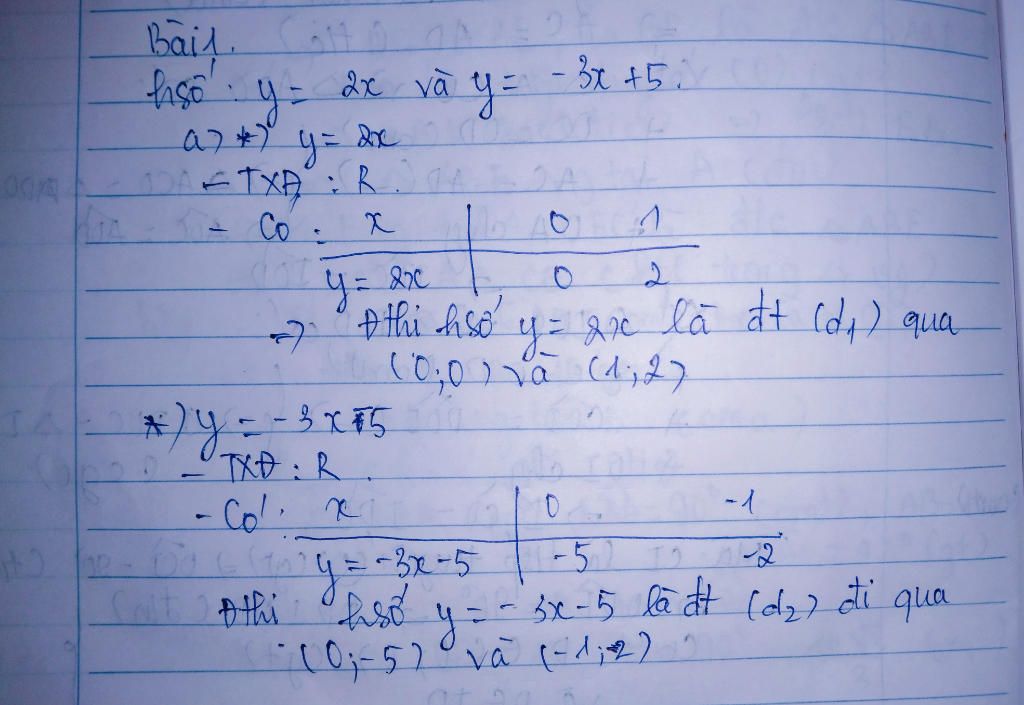 Bài 1.
hsố: y = 2x và y = -3x +5.
a) *) y = 2x
- TXĐ : R.
- Có : x 0 1
y = 2x 0 2
=> Đthi hsố y = 2x là đt (d1) qua
(0;0) và (1;2)
*) y = -3x-5
- TXĐ : R.
- Có : x 0 -1
y = -3x-5 -5 -2
Đthi hsố y = -3x-5 là đt (d2) đi qua
(0;-5) và (-1;-2)